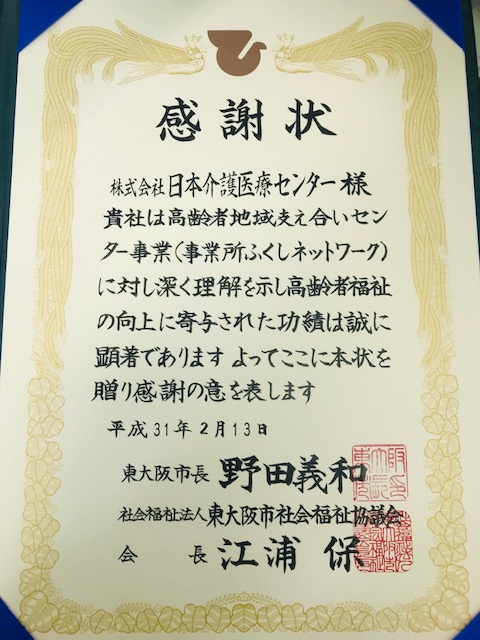 感謝状
株式会社日本介護医療センター様
貴社は高齢者地域支え合いセン
ター事業(事業所ふくしネットワーク)
に対し深く理解を示し高齢者福祉
の向上に寄与された功績は誠に
顕著でありますよってここに本状を
贈り感謝の意を表します
平成31年2月13日
東大阪市長 野田義和
社会福祉法人東大阪市社会福祉協議会
会長 江浦保